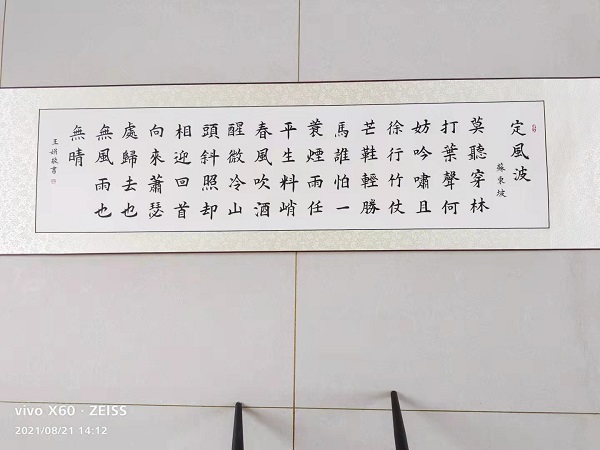 定風波
蘇東坡
莫聽穿林
打葉聲何
妨吟嘯且
徐行竹仗
芒鞋輕勝
馬誰怕一
蓑煙雨任
平生料峭
春風吹酒
醒微冷山
頭斜照却
相迎回首
向來蕭瑟
處歸去也
無風雨也
無晴
王娟敬書
vivo X60 · ZEISS
2021/08/21 14:12